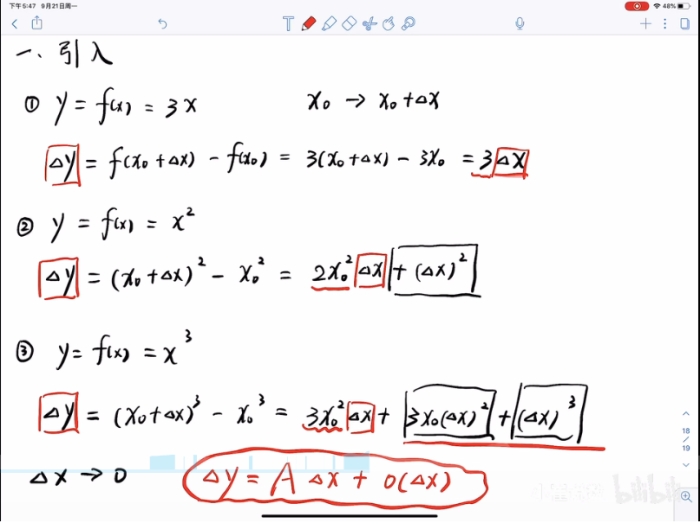 下午5:47 9月21日周一 48%
一、引入
① y = f(x) = 3x x₀ → x₀+Δx
Δy = f(x₀+Δx) - f(x₀) = 3(x₀+Δx) - 3x₀ = 3Δx
② y = f(x) = x²
Δy = (x₀+Δx)² - x₀² = 2x₀²Δx + (Δx)²
③ y = f(x) = x³
Δy = (x₀+Δx)³ - x₀³ = 3x₀²Δx + 3x₀(Δx)² + (Δx)³
18
19
Δx → 0 Δy = A Δx + o(Δx)
bilibili